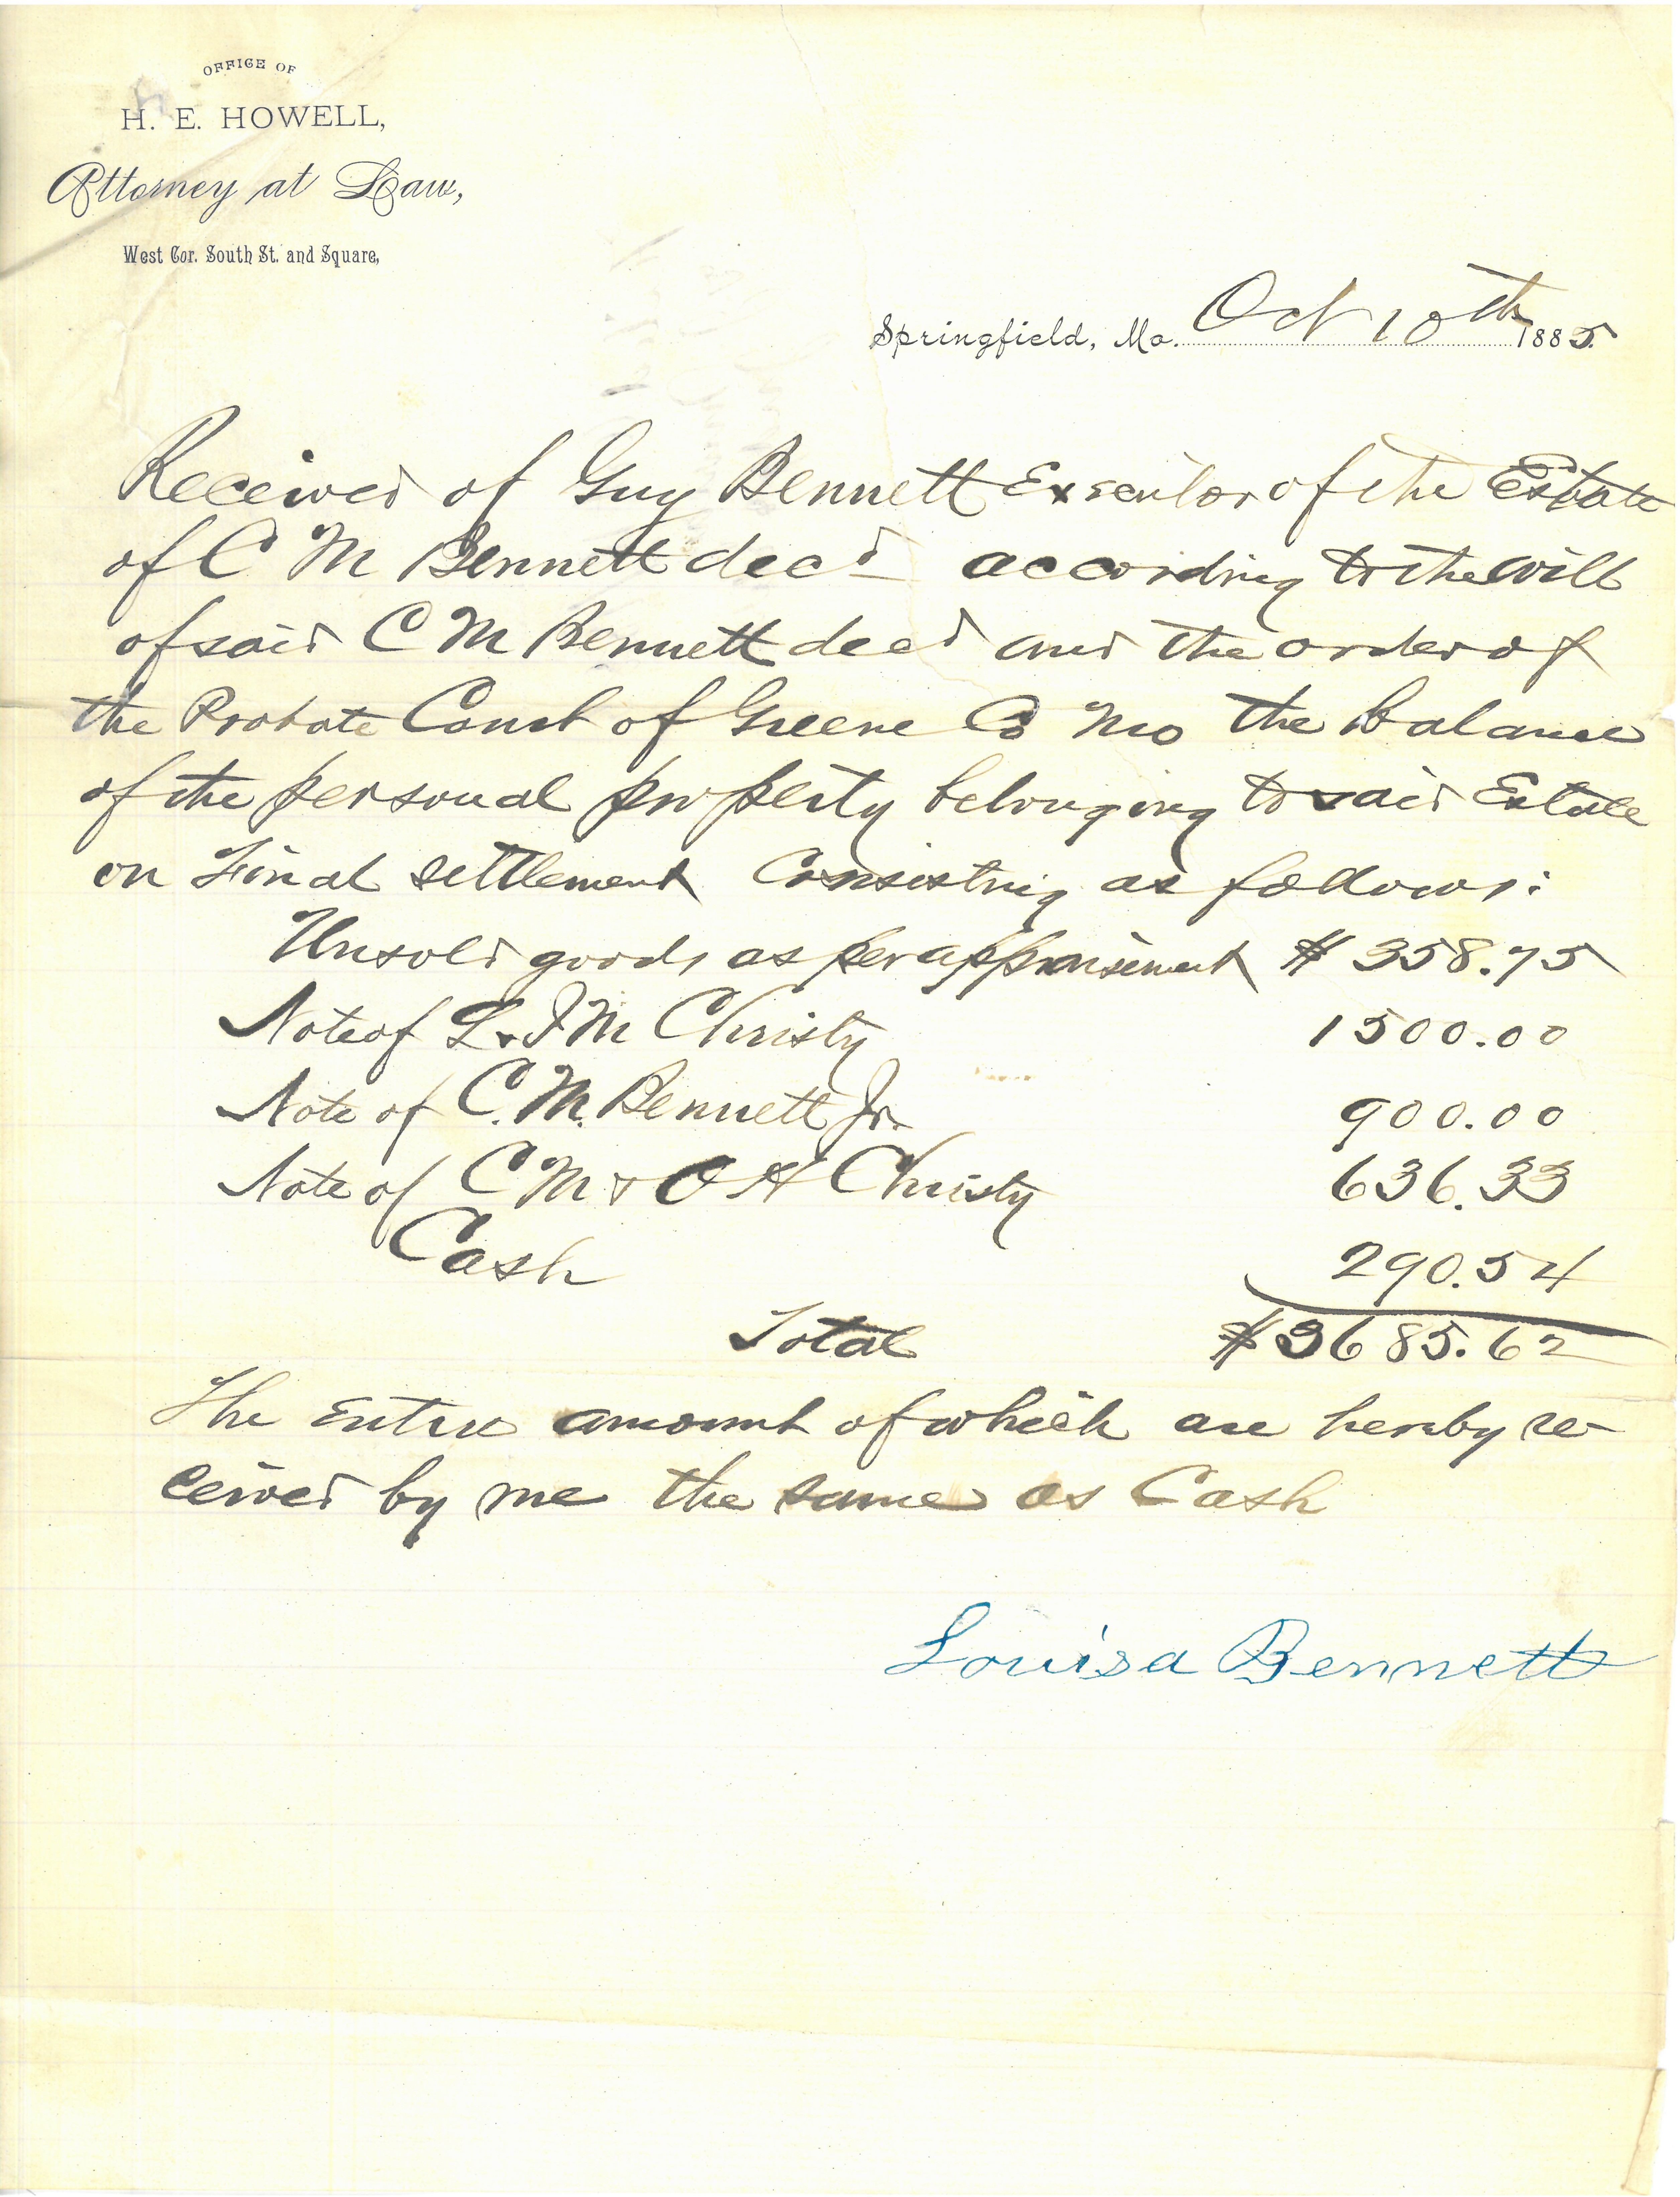 OFFICE OF
H. E. HOWELL,
Attorney at Law,
West Cor. South St. and Square,
Springfield, Mo. Oct 10th 1885
Received of Guy Bennett Executor of the Estate
of C M Bennett decd according to the will
of said C M Bennett decd and the order of
the Probate Court of Greene Co Mo the balance
of the personal property belonging to said Estate
on Final settlement Consisting as follows:
Unsold goods as per appraisement $ 358.75
Note of L & J M Christy 1500.00
Note of C. M. Bennett Jr. 900.00
Note of C M & O H Christy 636.33
Cash 290.54
Total $3685.62
The Entire amount of which are hereby re-
ceived by me the same as Cash
Louisa Bennett